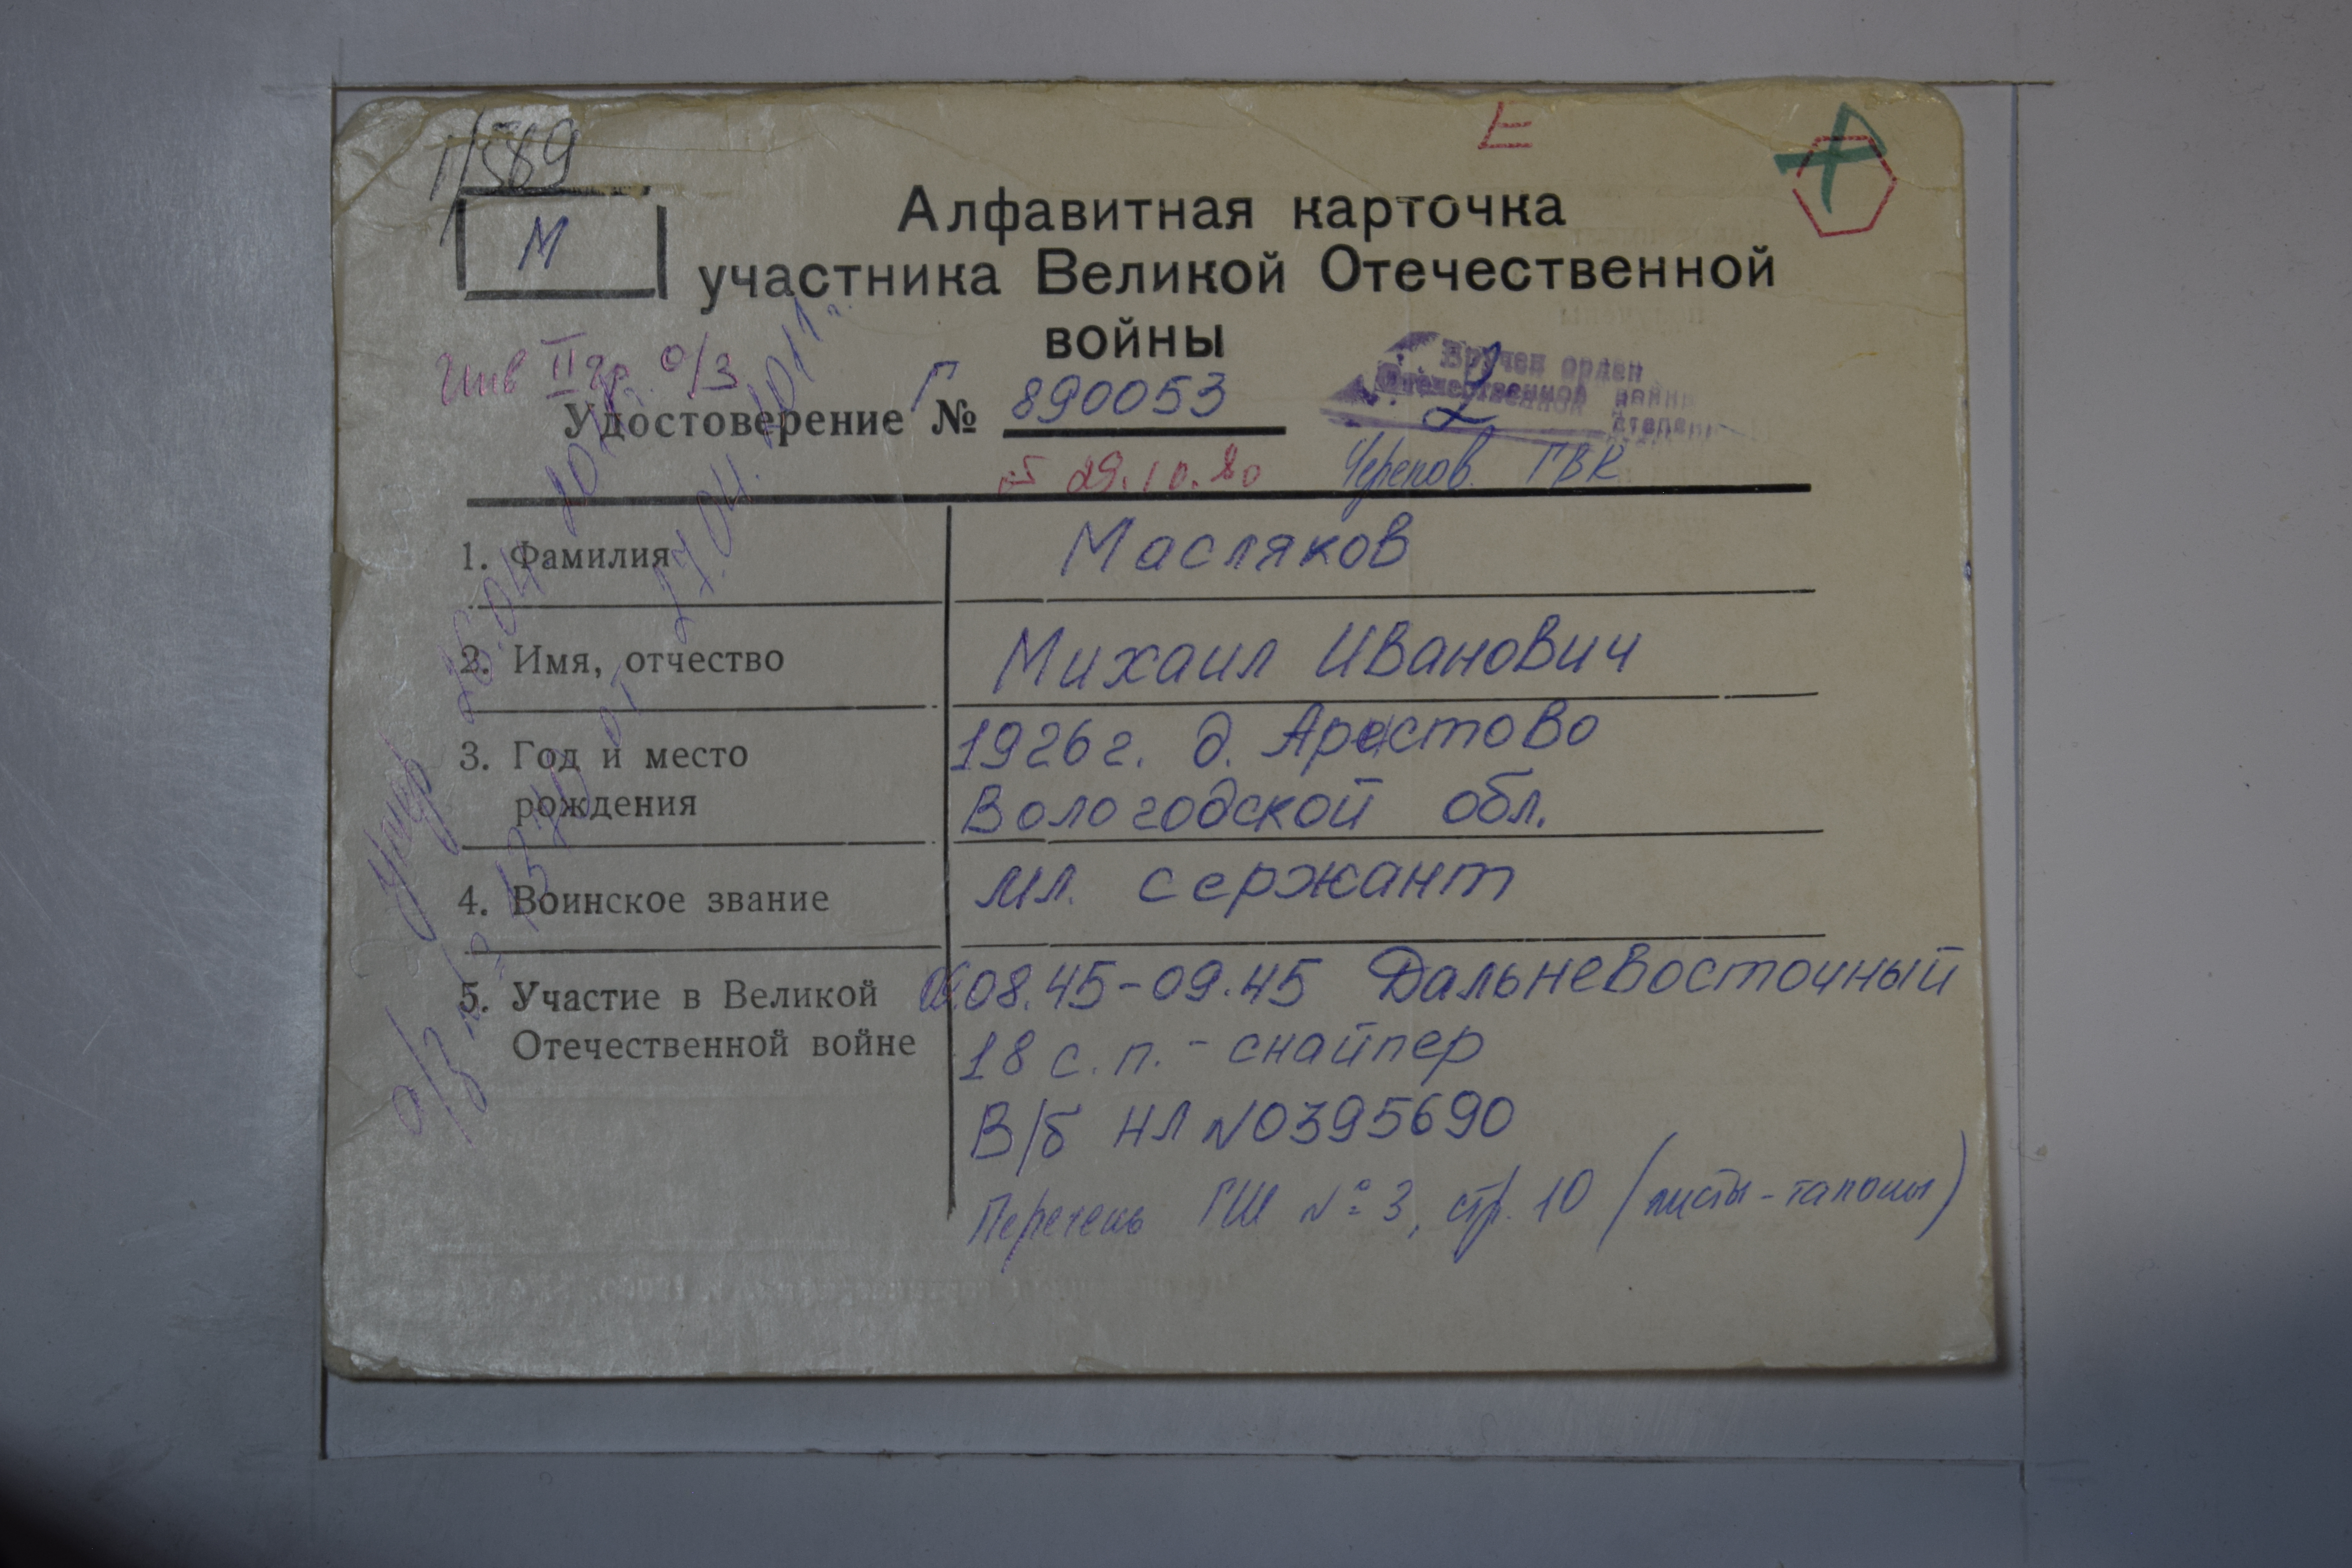 1/589
Е
М
Алфавитная карточка
участника Великой Отечественной
войны
Инв II гр. о/з
Вручен орден
Отечественной войны
2 степени
Удостоверение Г № 890053
от 29.10.80 Черепов. ГВК
1. Фамилия Масляков
2. Имя, отчество Михаил Иванович
3. Год и место 1926 г. д. Арестово
рождения Вологодской обл.
4. Воинское звание мл. сержант
5. Участие в Великой 08.45-09.45 Дальневосточный
Отечественной войне 18 с.п. - снайпер
В/б НЛ №0395690
Перечень ГШ № 3, стр. 10
Умер 26.04 2011
о/з от 27.04.2011 г.